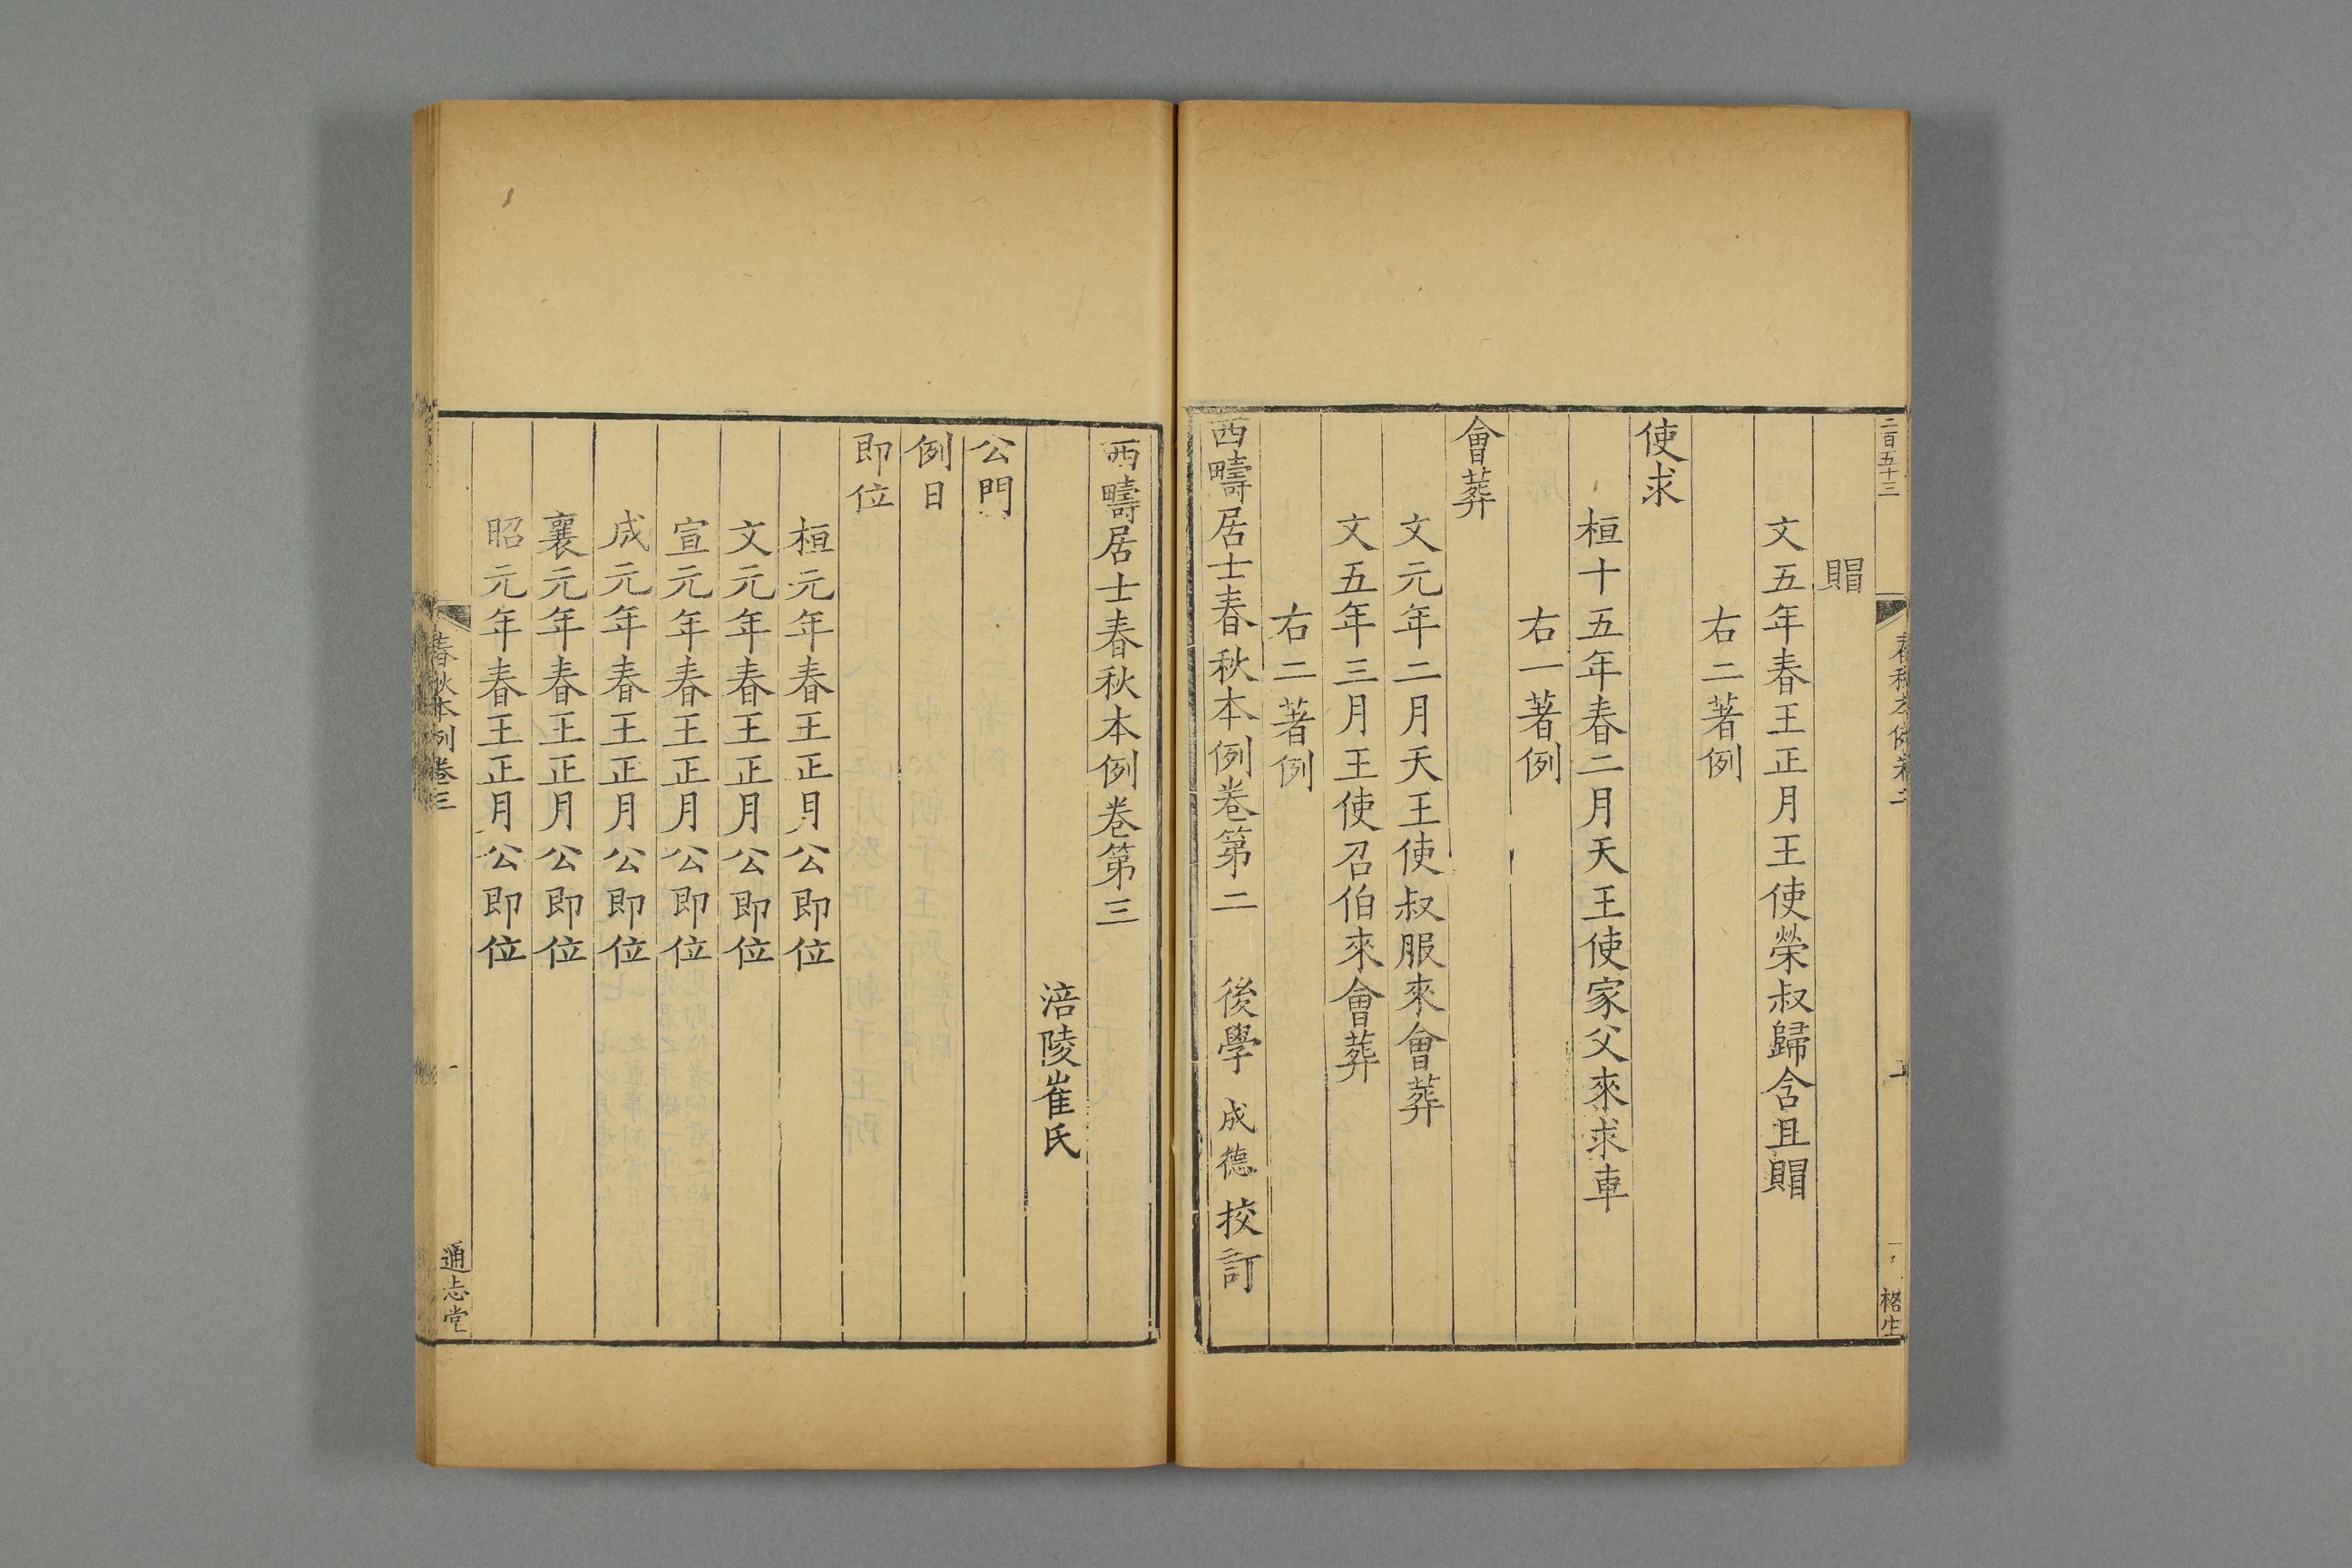 二百五十三
格生
賵
文五年春王正月王使榮叔歸含且賵
右二著例
使求
桓十五年春二月天王使家父來求車
右一著例
會葬
文元年二月天王使叔服來會葬
文五年三月王使召伯來會葬
右二著例
西疇居士春秋本例卷第二 後學 成德 挍訂
西疇居士春秋本例卷第三
涪陵崔氏
公門
例日
即位
桓元年春王正月公即位
文元年春王正月公即位
宣元年春王正月公即位
成元年春王正月公即位
襄元年春王正月公即位
昭元年春王正月公即位
春秋本例卷三 一 通志堂